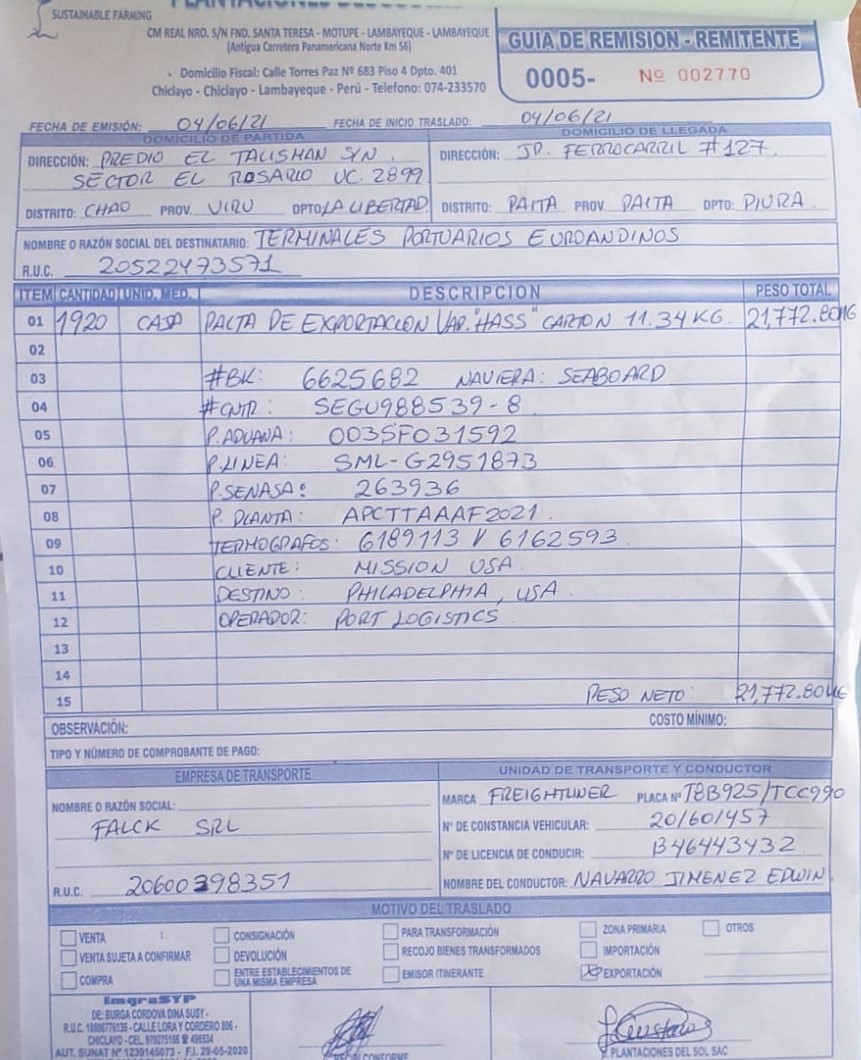 SUSTAINABLE FARMING
CM REAL NRO. S/N FND. SANTA TERESA - MOTUPE - LAMBAYEQUE - LAMBAYEQUE
(Antigua Carretera Panamericana Norte Km 56)
Domicilio Fiscal: Calle Torres Paz Nº 683 Piso 4 Dpto. 401
Chiclayo - Chiclayo - Lambayeque - Perú - Telefono: 074-233570
GUIA DE REMISION - REMITENTE
0005- Nº 002770
FECHA DE EMISIÓN: 04/06/21 FECHA DE INICIO TRASLADO: 04/06/21
DOMICILIO DE PARTIDA
DIRECCIÓN: PREDIO EL TALISMAN S/N.
SECTOR EL ROSARIO UC. 2899
DISTRITO: CHAO PROV. VIRU DPTO: LA LIBERTAD
DOMICILIO DE LLEGADA
DIRECCIÓN: JR. FERROCARRIL #127.
DISTRITO: PAITA PROV. PAITA DPTO: PIURA.
NOMBRE O RAZÓN SOCIAL DEL DESTINATARIO: TERMINALES PORTUARIOS EUROANDINOS
R.U.C. 20522473571
ITEM CANTIDAD UNID. MED. DESCRIPCION PESO TOTAL
01 1920 CAJA PALTA DE EXPORTACION VAR. "HASS" CARTON 11.34 KG. 21,772.80KG
02
03 #BK: 6625682 NAVIERA: SEABOARD
04 #CNTR: SEGU988539-8
05 P.ADUANA: 003SF031592
06 P.LINEA: SML-G2951873
07 P.SENASA: 263936
08 P. PLANTA: APCTTAAAF2021.
09 TERMOGRAFOS: 6189113 Y 6162593.
10 CLIENTE: MISSION USA.
11 DESTINO: PHILADELPHIA, USA.
12 OPERADOR: PORT LOGISTICS
13
14
15 PESO NETO: 21,772.80KG
OBSERVACIÓN: COSTO MÍNIMO:
TIPO Y NÚMERO DE COMPROBANTE DE PAGO:
EMPRESA DE TRANSPORTE
NOMBRE O RAZÓN SOCIAL:
FALCK SRL
R.U.C. 20600398351
UNIDAD DE TRANSPORTE Y CONDUCTOR
MARCA FREIGHTLINER PLACA Nº T8B925/TCC990
Nº DE CONSTANCIA VEHICULAR: 20/601457
Nº DE LICENCIA DE CONDUCIR: B46443432
NOMBRE DEL CONDUCTOR: NAVARRO JIMENEZ EDWIN
MOTIVO DEL TRASLADO
VENTA CONSIGNACIÓN PARA TRANSFORMACIÓN ZONA PRIMARIA OTROS
VENTA SUJETA A CONFIRMAR DEVOLUCIÓN RECOJO BIENES TRANSFORMADOS IMPORTACIÓN
COMPRA ENTRE ESTABLECIMIENTOS DE UNA MISMA EMPRESA EMISOR ITINERANTE EXPORTACIÓN
ImgraSYP
DE: BURGA CORDOVA DINA SUSY -
CALLE LORA Y CORDERO 806 -
AUT. SUNAT Nº 1239145073 - F.I. 29-05-2020
CONFORME
PLANTACIONES DEL SOL SAC